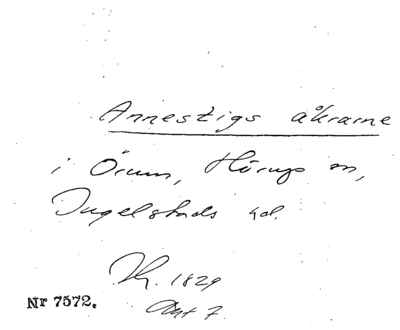 Annestigs åkrarne
i Örum, Hörups sn,
Ingelstads hd.
Kr. 1829
Akt 7.
Nr 7572.